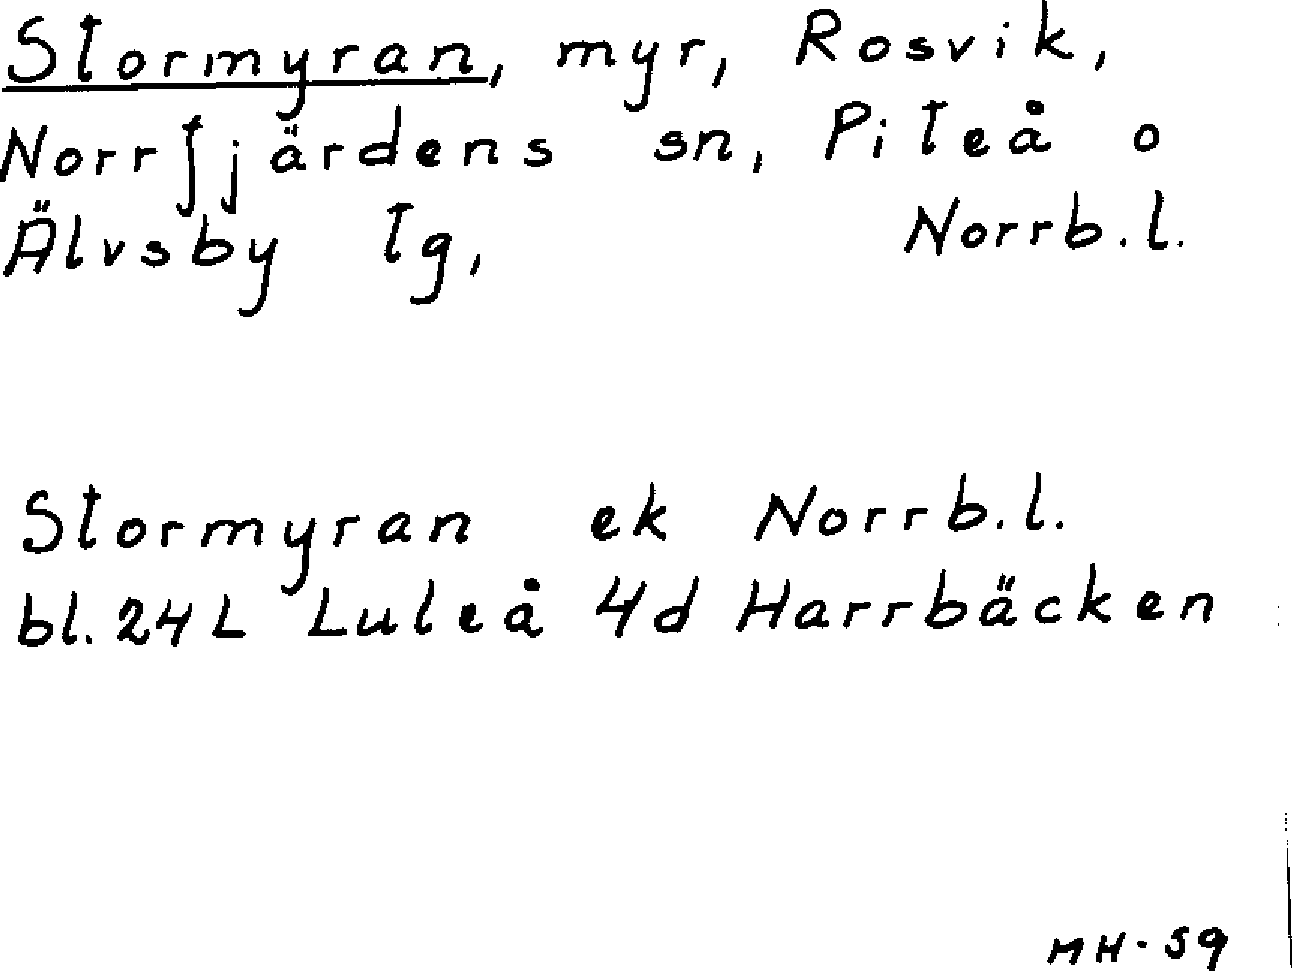 Stormyran, myr, Rosvik,
Norrfjärdens sn, Piteå o
Älvsby tg, Norrb.l.
Stormyran ek Norrb.l.
bl. 24L Luleå 4d Harrbäcken
MH-59